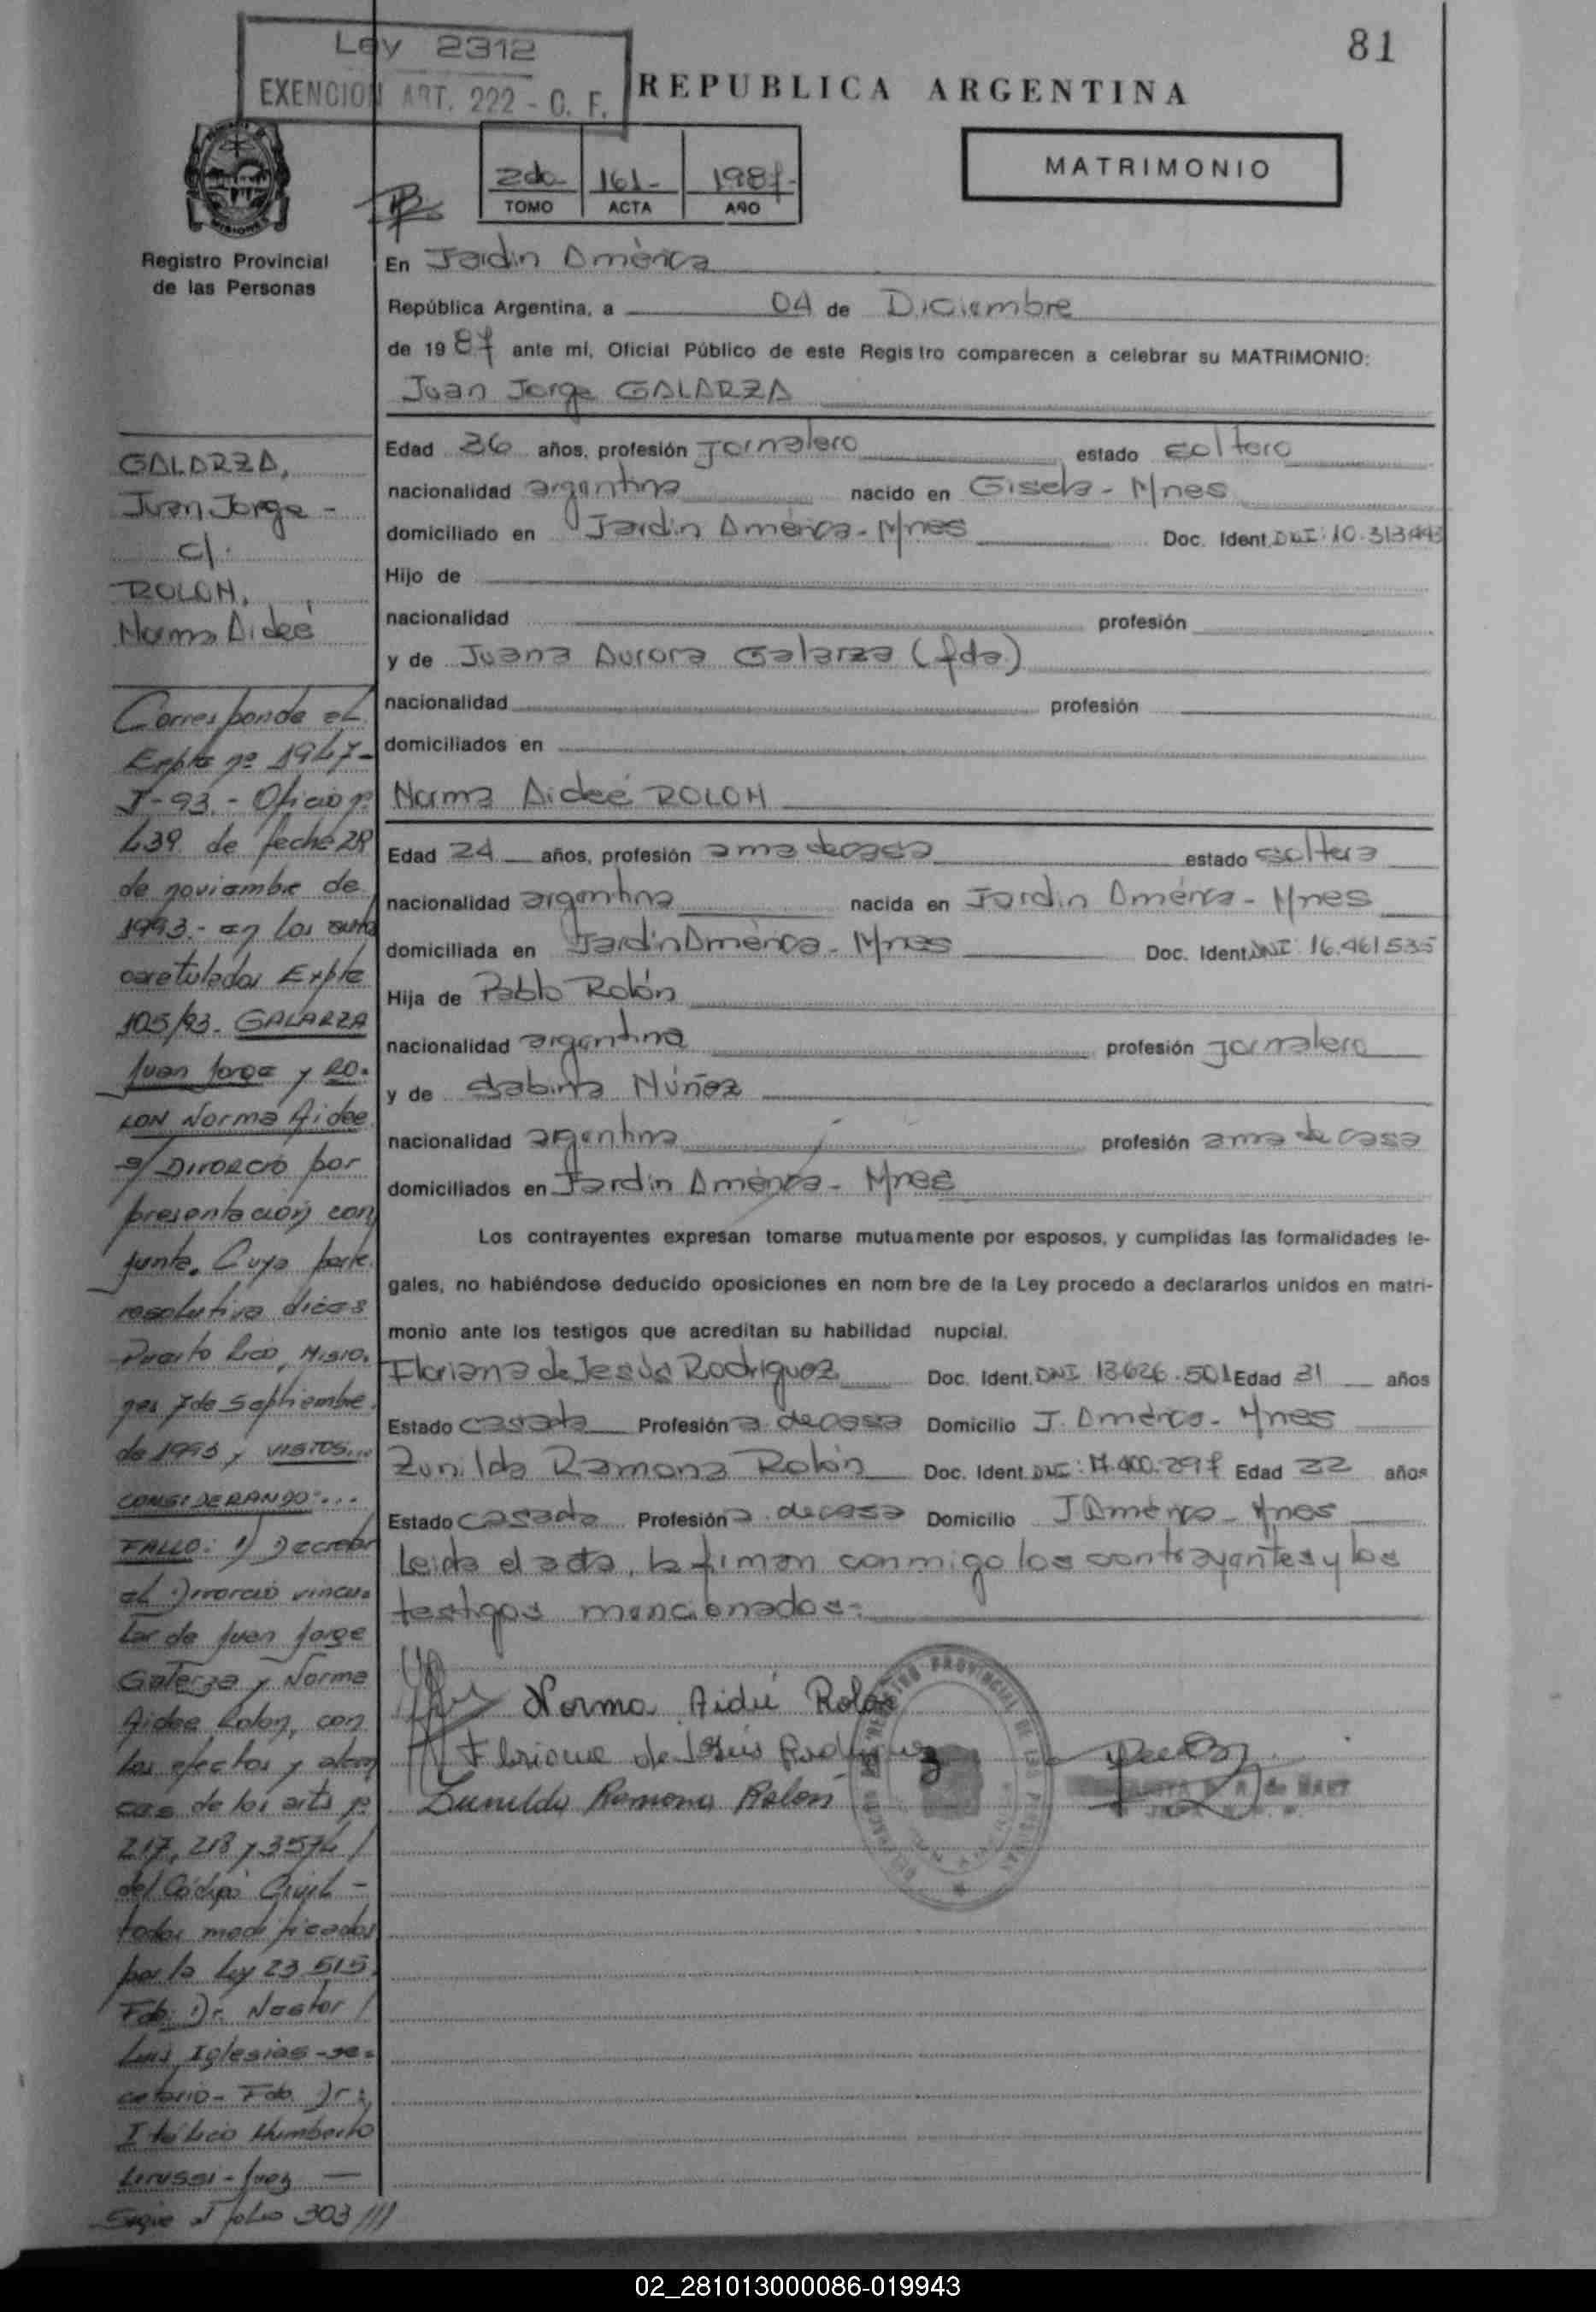 81
Ley 2312
EXENCION ART. 222 - C. F.
REPUBLICA ARGENTINA
MATRIMONIO
2do 161- 1987-
TOMO ACTA AÑO
Registro Provincial
de las Personas
En Jardín América
República Argentina, a 04 de Diciembre
de 1987 ante mí, Oficial Público de este Registro comparecen a celebrar su MATRIMONIO:
Juan Jorge GALARZA
Edad 36 años, profesión Jornalero estado soltero
nacionalidad argentina nacido en Gisela - Mnes
domiciliado en Jardín América - Mnes Doc. Ident. DNI: 10.313.443
Hijo de
nacionalidad profesión
y de Juana Aurora Galarza (fda)
nacionalidad profesión
domiciliados en
Norma Aideé ROLON
Edad 24 años, profesión ama de casa estado soltera
nacionalidad argentina nacida en Jardín América - Mnes
domiciliada en Jardín América - Mnes Doc. Ident. DNI: 16.461.535
Hija de Pablo Rolón
nacionalidad argentina profesión jornalero
y de Sabina Núñez
nacionalidad argentina profesión ama de casa
domiciliados en Jardín América - Mnes
Los contrayentes expresan tomarse mutuamente por esposos, y cumplidas las formalidades le-
gales, no habiéndose deducido oposiciones en nombre de la Ley procedo a declararlos unidos en matri-
monio ante los testigos que acreditan su habilidad nupcial.
Floriana de Jesús Rodriguez Doc. Ident. DNI 13.626.501 Edad 31 años
Estado casada Profesión a. de casa Domicilio J. América - Mnes
Zunilda Ramona Rolón Doc. Ident. DNI: 17.400.297 Edad 22 años
Estado casada Profesión a. de casa Domicilio J América - Mnes
Leida el acta, la firman conmigo los contrayentes y los
testigos mencionados.
Norma Aideé Rolon
Floriana de Jesús Rodriguez
Zunilda Ramona Rolón
GALARZA,
Juan Jorge -
c/.
ROLON,
Norma Aideé
Corresponde el
Expte nº 1947-
J-93.- Oficio nº
439. de fecha 28
de noviembre de
1993.- en los autos
caratulados Expte
105/93. GALARZA
Juan Jorge y RO-
LON Norma Aidee
s/ DIVORCIO por
presentación con
junta. Cuya parte
resolutiva dice:
Puerto Rico, Misio-
nes 7 de septiembre
de 1993 y VISTOS...
CONSIDERANDO:...
FALLO: 1) Decretar
el Divorcio vincu-
lar de Juan Jorge
Galarza y Norma
Aidee Rolon, con
los efectos y alcan
ces de los arts nº
217, 218 y 3574 /
del Código Civil -
todos modificados
por la Ley 23.515.
Fdo: Dr. Nestor /
Luis Iglesias - se-
cretario - Fdo. Dr.
Italico Humberto
Lerussi - Juez —
Sigue al folio 303 ///
02_281013000086-019943